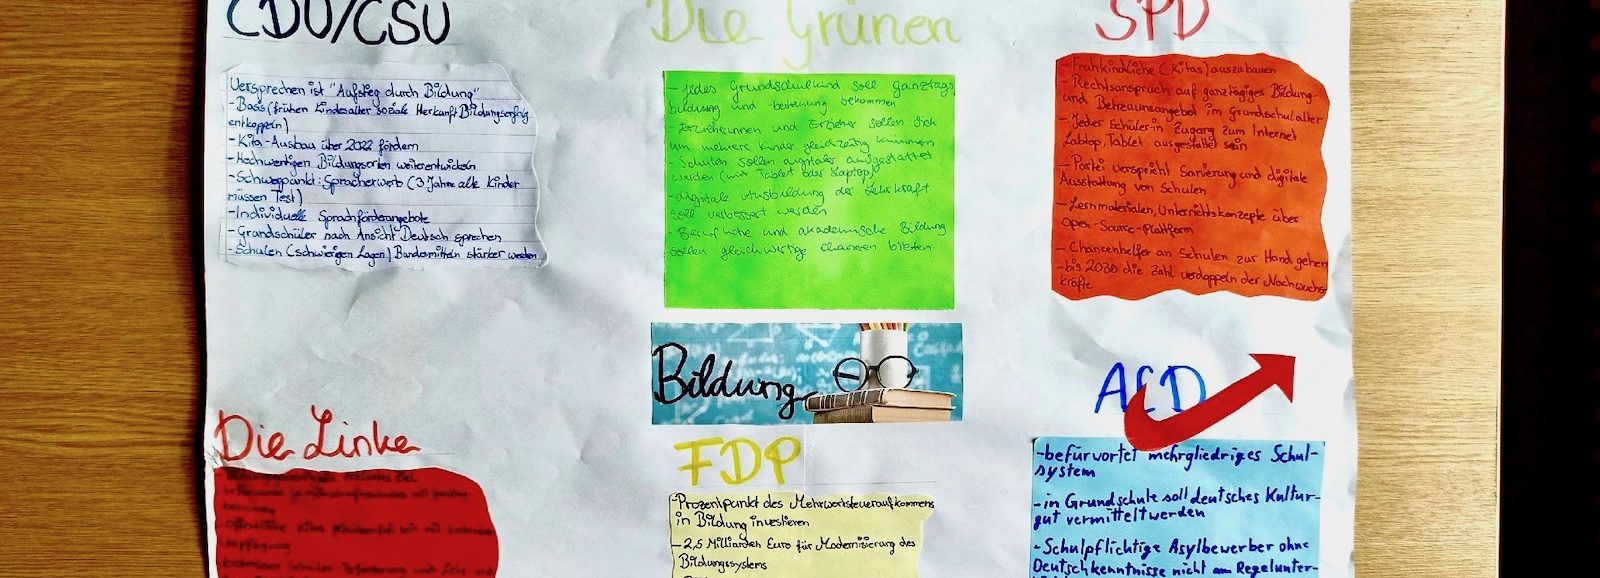 CDU/CSU
Versprechen ist "Aufstieg durch Bildung"
- Basis (frühen Kindesalter soziale Herkunft Bildungserfolg
entkoppeln)
- Kita-Ausbau über 2022 fördern
- Hochwertigen Bildungsorten weiterentwickeln
- Schwerpunkt: Spracherwerb (3 Jahre alte Kinder
müssen Test)
- Individuelle Sprachförderangebote
- Grundschüler nach Ansicht Deutsch sprechen
- Schulen (schwierigen Lagen) Bundesmitteln stärker werden
Die Grünen
- Jedes Grundschulkind soll Ganztags
bildung und -betreuung bekommen
- Erzieherinnen und Erzieher sollen sich
um mehrere Kinder gleichzeitig kümmern
- Schulen sollen digitaler ausgestattet
werden (mit Tablet oder Laptop)
- digitale Ausbildung der Lehrkraft
soll verbessert werden
- Berufliche und akademische Bildung
sollen gleichwertige Chancen bieten
SPD
- Frühkindliche (Kitas) auszubauen
- Rechtsanspruch auf ganztägiges Bildung-
und Betreuunsangebot im Grundschulalter
- Jeder Schülerin Zugang zum Internet
Labtop, Tablet ausgestattet sein
- Partei verspricht Sanierung und digitale
Ausstattung von Schulen
- Lernmaterialien, Unterrichtskonzepte über
Open-Source-Plattform
- Chancenhelfer an Schulen zur Hand gehen
- bis 2030 die Zahl verdoppeln der Nachwuchs
kräfte
Bildung
Die Linke
FDP
- Prozentpunkt des Mehrwertsteueraufkommens
in Bildung investieren
- 2,5 Milliarden Euro für Modernisierung des
Bildungssystems
AfD
- befürwortet mehrgliedriges Schul-
system
- in Grundschule soll deutsches Kultur-
gut vermittelt werden
- Schulpflichtige Asylbewerber ohne
Deutschkenntnisse nicht am Regelunter-